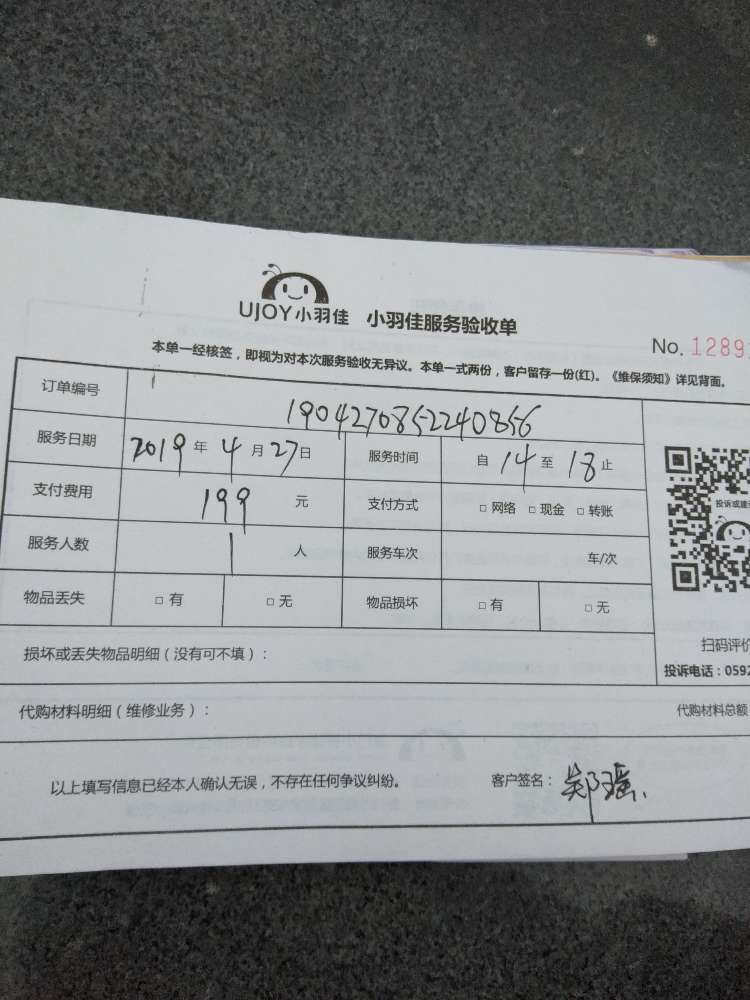 UJOY小羽佳 小羽佳服务验收单
No. 1289
本单一经核签，即视为对本次服务验收无异议。本单一式两份，客户留存一份(红)。《维保须知》详见背面。
订单编号 1904270852240856
服务日期 2019年4月27日 服务时间 自14至18止
投诉或建
支付费用 199元 支付方式 □ 网络 □ 现金 □ 转账
服务人数 1人 服务车次 车/次
物品丢失 □ 有 □ 无 物品损坏 □ 有 □ 无
扫码评价
损坏或丢失物品明细（没有可不填）：
投诉电话：0592
代购材料明细（维修业务）： 代购材料总额
以上填写信息已经本人确认无误，不存在任何争议纠纷。 客户签名：郑瑶